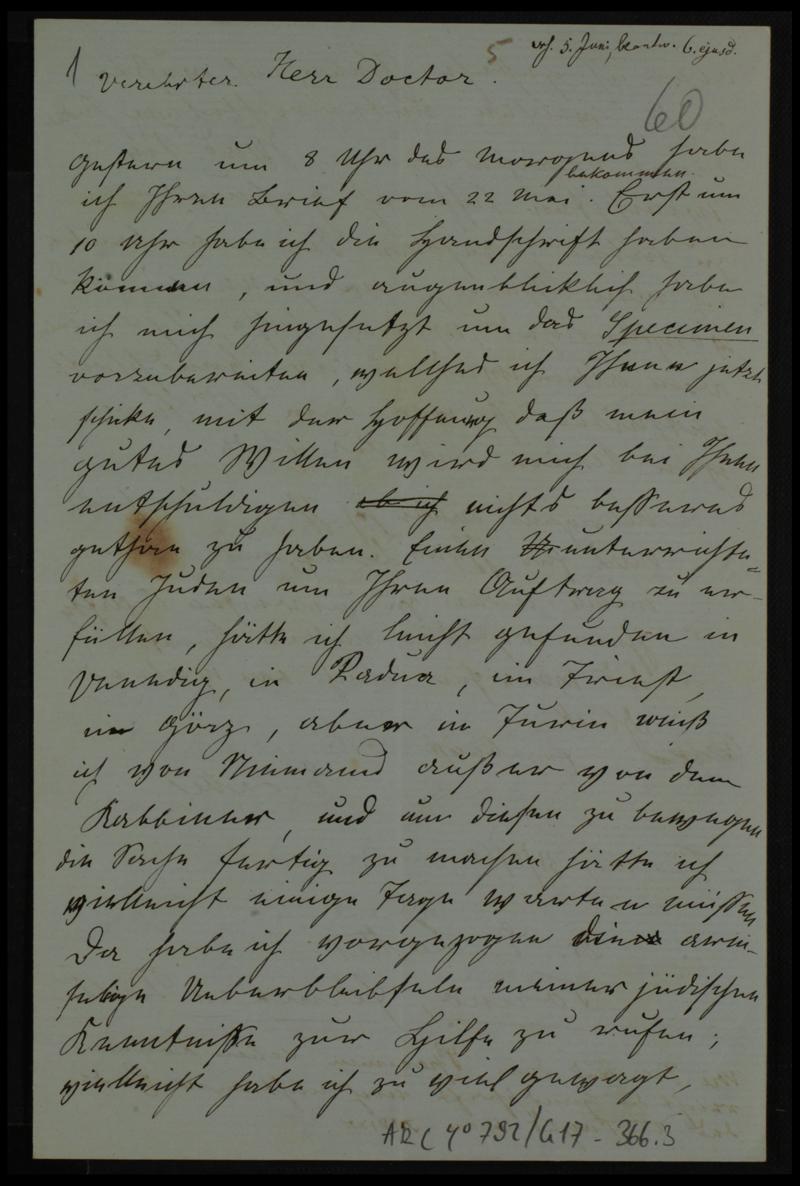 1
5
erh. 5. Juni, beantw. 6. ejusd.
Verehrter Herr Doctor.
60
Gestern um 8 Uhr des Morgens habe
bekommen.
ich Ihren Brief vom 22 Mai. Erst um
10 Uhr habe ich die Handschrift haben
können, und augenbliklich habe
ich mich hingesetzt um das Specimen
vorzubereiten, welches ich Ihnen jetzt
schike, mit der Hoffnung daß mein
gutes Willen wird mich bei Ihnen
entschuldigen ob ich nichts besseres
gethan zu haben. Einen unterrichte=
ten Juden um Ihren Auftrag zu er-
füllen, hätte ich leicht gefunden in
Venedig, in Padua, in Triest,
in Görz, aber in Turin weiß
ich von Niemand außer von dem
Rabbiner, und um diesen zu bewegen
die Sache fertig zu machen hätte ich
vielleicht einige Tage warten müssen
Da habe ich vorgezogen die arm-
selige Ueberbleibseln meiner jüdischen
Kenntniße zur Hilfe zu rufen;
vielleicht habe ich zu viel gewagt,
ARC 4° 792/G17 - 366.3